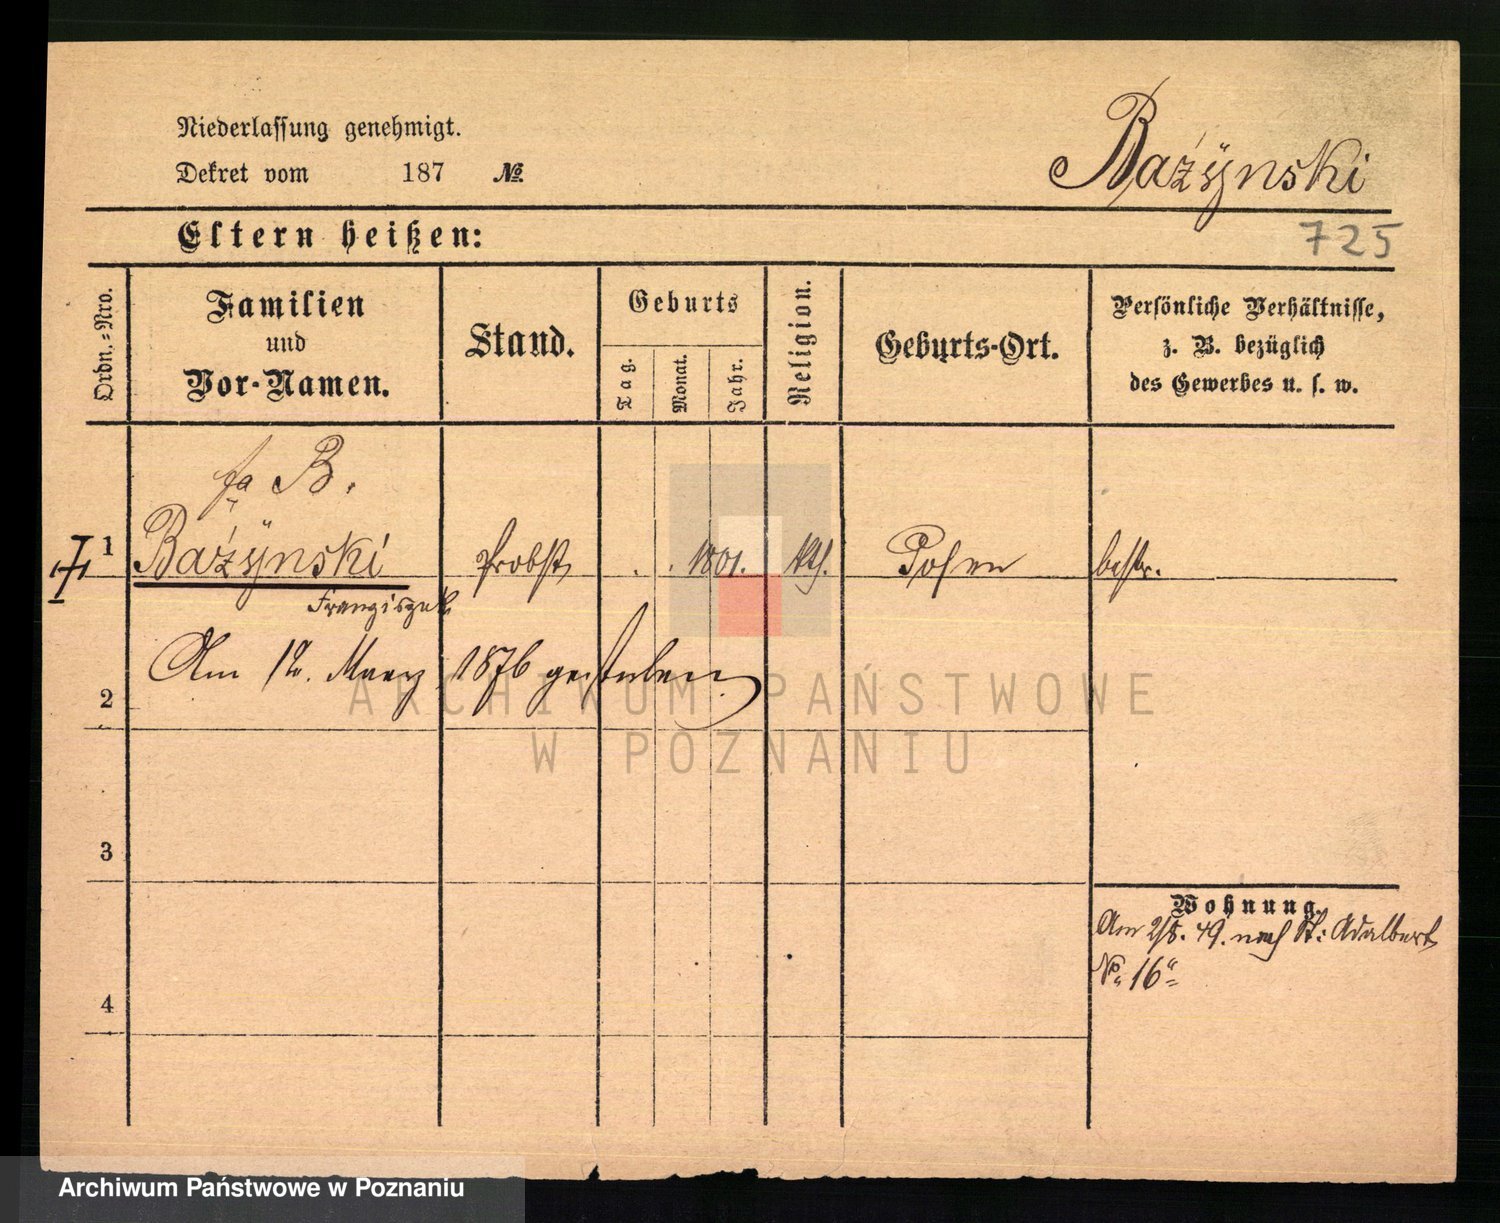 Niederlassung genehmigt.
Dekret vom 187 №
Bażÿnski
725
Eltern heißen:
Ordn.-Nro.
Familien
und
Vor-Namen.
Stand.
Geburts
Tag.
Monat.
Jahr.
Religion.
Geburts-Ort.
Persönliche Verhältnisse,
z. B. bezüglich
des Gewerbes u. s. w.
fa B.
1 Bażÿnski Probst 1801. kth. Posen
Franziszek
2 Am 12. Maerz 1876 gestorben
3
4
Wohnung.
Am 2/8. 49. nach St: Adalbert
No. 16
ARCHIWUM PAŃSTWOWE
W POZNANIU
Archiwum Państwowe w Poznaniu